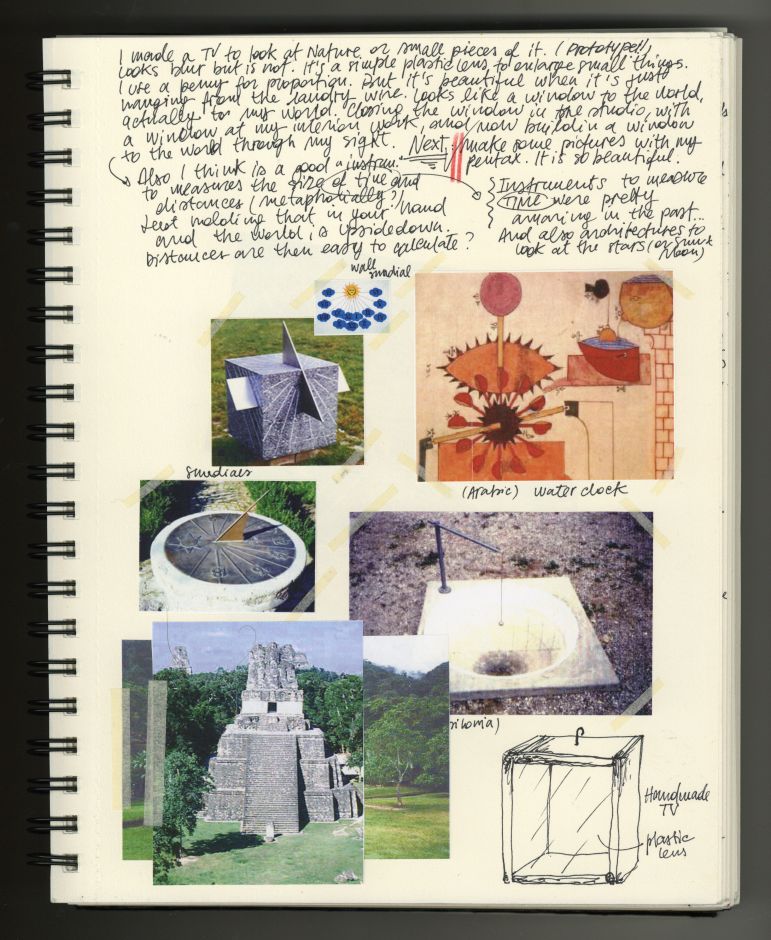 I made a TV to look at Nature or small pieces of it. (Prototype!!)
Looks blur but is not. It's a simple plastic lens, to enlarge small things.
I use a penny for proportion. But it's beautiful when it's just
hanging from the laundry wire. Looks like a window to the world,
actually to my world. Closing the window in the studio, with
a window at my interior work, and now buildin a window
to the world through my sight. Next: make some pictures with my
pentax. It is so beautiful.
Also I think is a good instrum.
to measures the size of time and
distances (metaphorically?)
holding that in your hand
and the world is upsidedown.
Distances are then easy to calculate?
Instruments to measure
TIME were pretty
amazing in the past...
And also architectures to
look at the stars (or Sun &
Moon)
wall
sundial
Sundials
(Arabic) water clock
Handmade
TV
plastic
lens